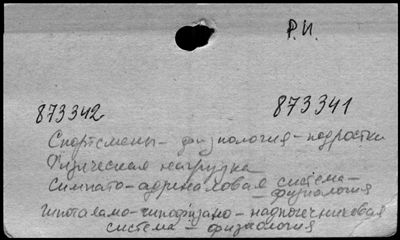 Р.И.
873342 873341
Спортсмены - физиология - подростки
Физическая нагрузка
Симпато-адреналовая система -
- физиология
Гипоталамо-гипофизарно - надпочечниковая
система - физиология